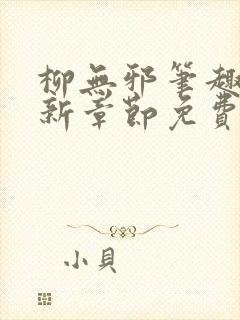 柳無邪筆趣
新章節免費
小貝